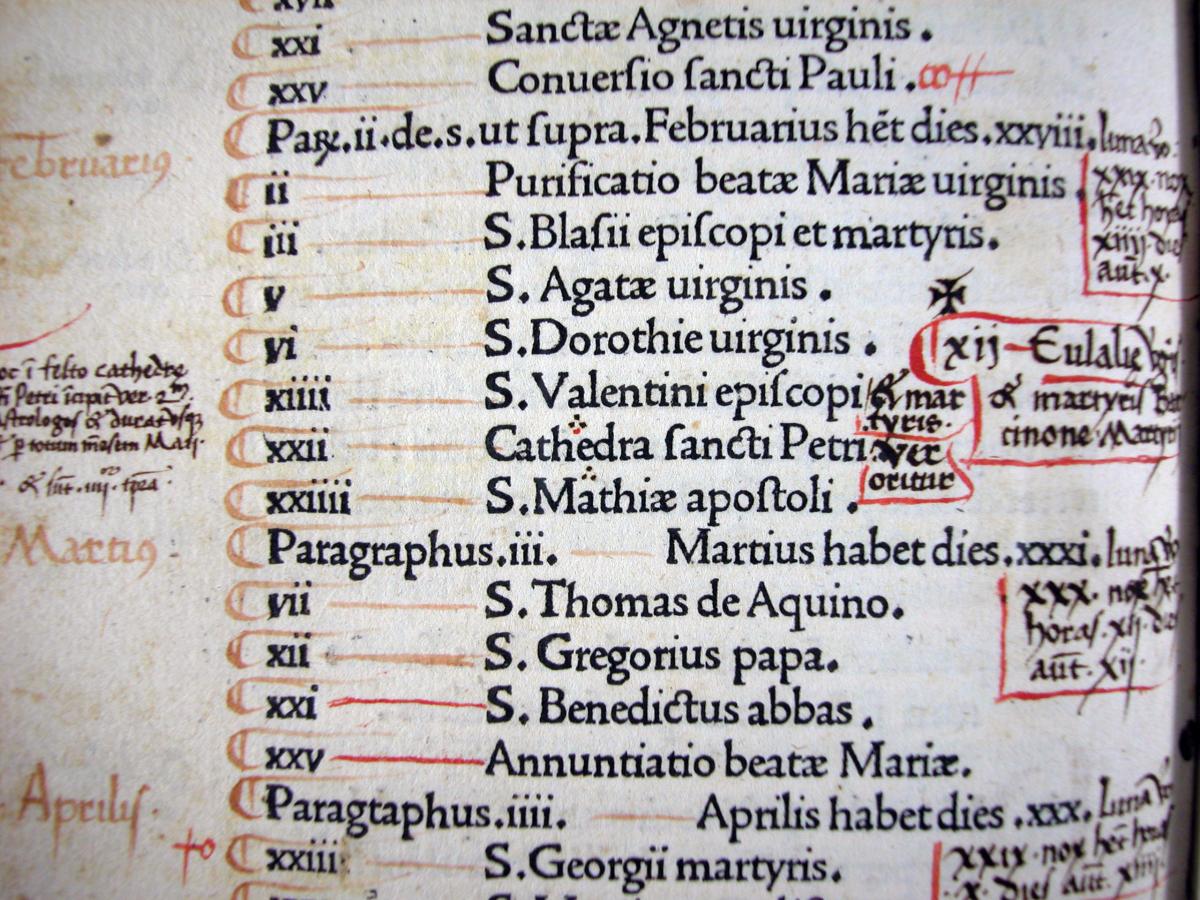 xxi Sanctæ Agnetis uirginis .
xxv Conuerſio ſancti Pauli .
Februariꝯ
Paꝝ.ii.de.s.ut ſupra.Februarius hēt dies.xxyiii. luna
ii Purificatio beatæ Mariæ uirginis .
xxix. nox
hēt horas
xiiij. dies
aūt. x.
iii S.Blaſii epiſcopi et martyris.
v S. Agatæ uirginis .
vi S.Dorothie uirginis .
xij Eulalię
& martyris
cinone
xiiii S.Valentini epiſcopi & mar
tyris.
xxii Cathedra ſancti Petri. ver
oritur
ī feſto cathedre
Petri īcipit ver.
aſtrologos & durat
ꝑ totum mēsem
xxiiii S.Mathiæ apoſtoli .
Martiꝯ.
Paragraphus.iii. Martius habet dies.xxxi. luna
xxx. nox
horas. xij. dies
aūt. xij.
vii S.Thomas de Aquino.
xii S. Gregorius papa.
xxi S. Benedictus abbas .
xxv Annuntiatio beatæ Mariæ.
Aprilis.
Paragtaphus.iiii. Aprilis habet dies .xxx. luna
xxiii S.Georgii martyris.
xxix. nox hēt
.x. dies aūt. xiiij